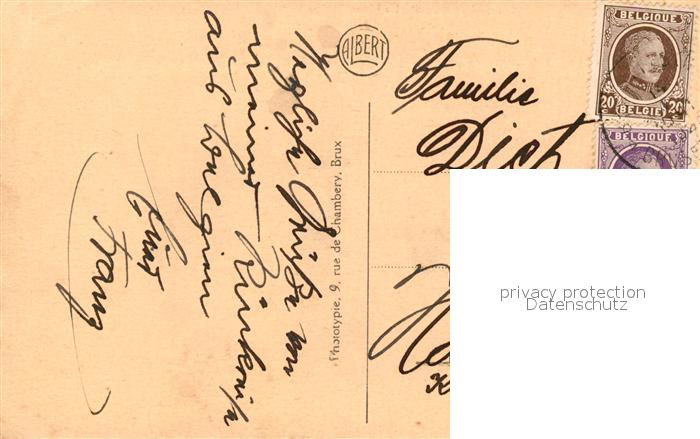 Herzliche Grüße von
meiner Rückreise
aus Belgien
Euer
Franz
ALBERT
Phototypie, 9, rue de Chambery, Brux
Familie
BELGIQUE
20 20
BELGIE
BELGIQUE
privacy protection
Datenschutz